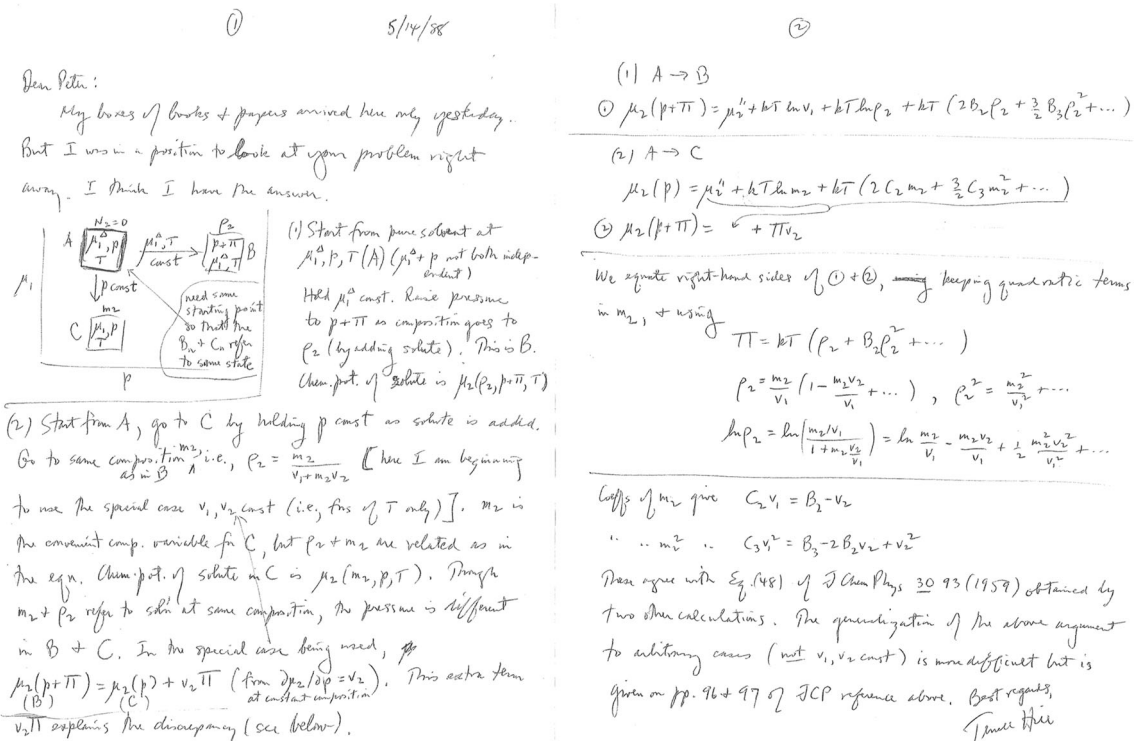 ①
5/14/88
Dear Peter:
My boxes of books & papers arrived here only yesterday.
But I was in a position to look at your problem right
away. I think I have the answer.
N₂=0
A
μ₁^Δ, p
T
μ₁^Δ, T
const
ρ₂
p+Π
μ₁^Δ, T
B
p const
m₂
C
μ₁, p
T
μ₁
p
need same
starting point
so that the
Bₙ & Cₙ refer
to same state
(1) Start from pure solvent at
μ₁^Δ, p, T (A) (μ₁^Δ & p not both indep-
endent)
Hold μ₁^Δ const. Raise pressure
to p+Π as composition goes to
ρ₂ (by adding solute). This is B.
Chem. pot. of solute is μ₂(ρ₂, p+Π, T)
(2) Start from A, go to C by holding p const as solute is added.
Go to same composition m₂ as in B, i.e., ρ₂ = m₂/(v₁+m₂v₂) [here I am beginning
to use the special case v₁, v₂ const (i.e., fns of T only)]. m₂ is
the convenient comp. variable for C, but ρ₂ & m₂ are related as in
the eqn. Chem. pot. of solute in C is μ₂(m₂, p, T). Though
m₂ & ρ₂ refer to soln at same composition, the pressure is different
in B & C. In the special case being used,
μ₂(p+Π) = μ₂(p) + v₂Π (from ∂μ₂/∂p = v₂). This extra term
(B) (C) at constant composition
v₂Π explains the discrepancy (see below).
②
(1) A → B
① μ₂(p+Π) = μ₂'' + kT ln v₁ + kT ln ρ₂ + kT (2B₂ρ₂ + 3/2 B₃ρ₂² + ···)
(2) A → C
μ₂(p) = μ₂'' + kT ln m₂ + kT (2C₂m₂ + 3/2 C₃m₂² + ···)
② μ₂(p+Π) = ↙ + Πv₂
We equate right-hand sides of ① & ②, keeping quadratic terms
in m₂, & using
Π = kT (ρ₂ + B₂ρ₂² + ···)
ρ₂ = m₂/v₁ (1 - m₂v₂/v₁ + ···), ρ₂² = m₂²/v₁² + ···
ln ρ₂ = ln (m₂/v₁ / (1 + m₂ v₂/v₁)) = ln m₂/v₁ - m₂v₂/v₁ + 1/2 m₂²v₂²/v₁² + ···
Coeffs of m₂ give C₂v₁ = B₂ - v₂
" " m₂² " C₃v₁² = B₃ - 2B₂v₂ + v₂²
These agree with Eq. (48) of J Chem Phys 30 93 (1959) obtained by
two other calculations. The generalization of the above argument
to arbitrary cases (not v₁, v₂ const) is more difficult but is
given on pp. 96 & 97 of JCP reference above. Best regards,
Terrell Hill